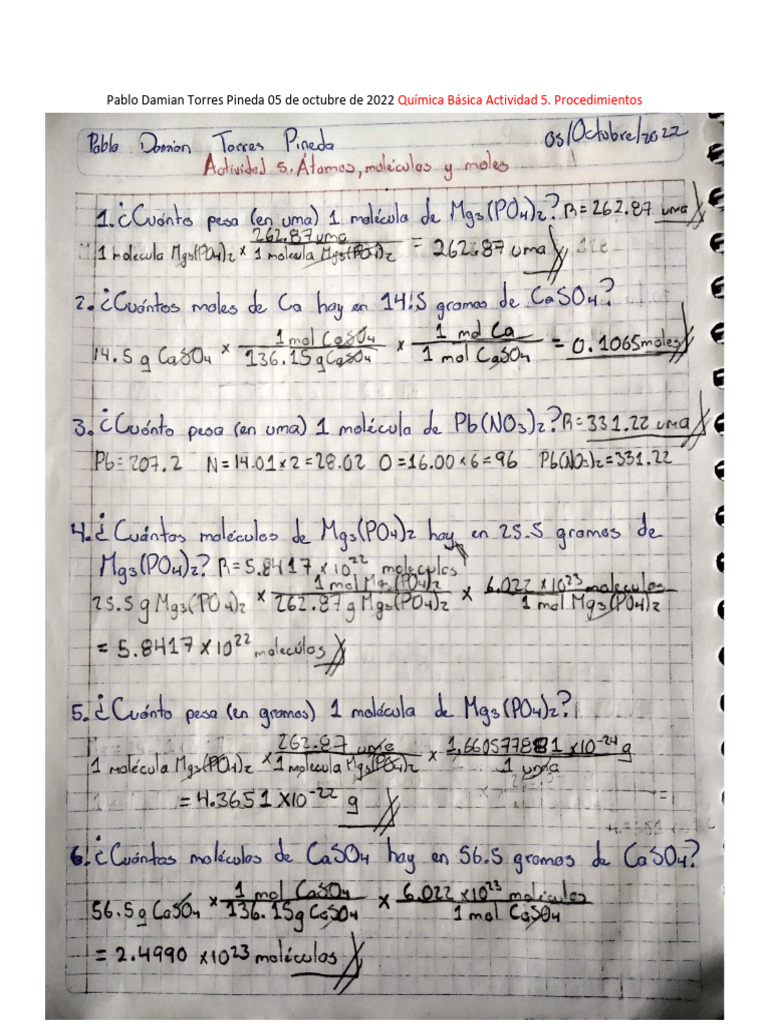 Pablo Damian Torres Pineda 05 de octubre de 2022 Química Básica Actividad 5. Procedimientos
Pablo Damian Torres Pineda 05/Octubre/2022
Actividad 5. Átomos, moléculas y moles
1. ¿Cuánto pesa (en uma) 1 molécula de Mg3(PO4)2? R=262.87 uma
1 molecula Mg3(PO4)2 × 262.87 uma / 1 molecula Mg3(PO4)2 = 262.87 uma
2. ¿Cuántos moles de Ca hay en 14.5 gramos de CaSO4?
14.5 g CaSO4 × 1 mol CaSO4 / 136.15 g CaSO4 × 1 mol Ca / 1 mol CaSO4 = 0.1065 moles
3. ¿Cuánto pesa (en uma) 1 molécula de Pb(NO3)2? R=331.22 uma
Pb=207.2 N=14.01×2=28.02 O=16.00×6=96 Pb(NO3)2=331.22
4. ¿Cuántas moléculas de Mg3(PO4)2 hay en 25.5 gramos de
Mg3(PO4)2? R=5.8417×10^22 moleculas
25.5 g Mg3(PO4)2 × 1 mol Mg3(PO4)2 / 262.87 g Mg3(PO4)2 × 6.022×10^23 moleculas / 1 mol Mg3(PO4)2
= 5.8417×10^22 moleculas
5. ¿Cuánto pesa (en gramos) 1 molécula de Mg3(PO4)2?
1 molécula Mg3(PO4)2 × 262.87 uma / 1 molecula Mg3(PO4)2 × 1.660577881×10^-24 g / 1 uma
= 4.3651×10^-22 g
6. ¿Cuántas moléculas de CaSO4 hay en 56.5 gramos de CaSO4?
56.5 g CaSO4 × 1 mol CaSO4 / 136.15 g CaSO4 × 6.022×10^23 moleculas / 1 mol CaSO4
= 2.4990×10^23 moleculas